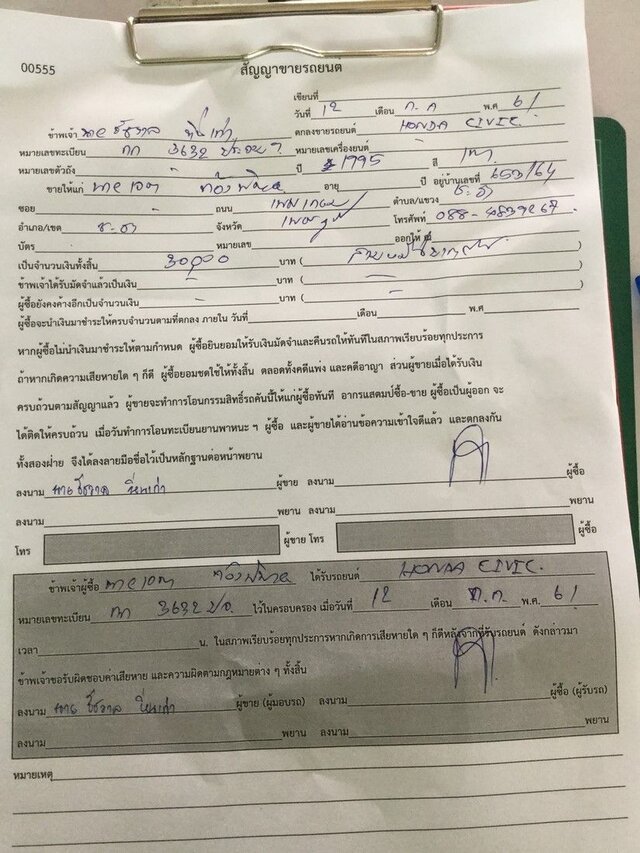 00555
สัญญาขายรถยนต์
เขียนที่
วันที่ 12 เดือน ก.ค พ.ศ 61
ข้าพเจ้า นายชัชวาล ตกลงขายรถยนต์ HONDA CIVIC.
หมายเลขทะเบียน กก 3632 หมายเลขเครื่องยนต์
หมายเลขตัวถัง - ปี 1995 สี เทา
ขายให้แก่ อายุ ปี อยู่บ้านเลขที่ 653/64
ซอย - ถนน ตำบล/แขวง
อำเภอ/เขต จังหวัด โทรศัพท์ 088-
บัตร หมายเลข ออกให้ ณ
เป็นจำนวนเงินทั้งสิ้น 30,000 บาท ( )
ข้าพเจ้าได้รับมัดจำแล้วเป็นเงิน - บาท ( - )
ผู้ซื้อยังคงค้างอีกเป็นจำนวนเงิน - บาท ( - )
ผู้ซื้อจะนำเงินมาชำระให้ครบจำนวนตามที่ตกลง ภายใน วันที่ เดือน พ.ศ
หากผู้ซื้อไม่นำเงินมาชำระให้ตามกำหนด ผู้ซื้อยินยอมให้รับเงินมัดจำและคืนรถให้ทันทีในสภาพเรียบร้อยทุกประการ
ถ้าหากเกิดความเสียหายใด ๆ ก็ดี ผู้ซื้อยอมชดใช้ให้ทั้งสิ้น ตลอดทั้งคดีแพ่ง และคดีอาญา ส่วนผู้ขายเมื่อได้รับเงิน
ครบถ้วนตามสัญญาแล้ว ผู้ขายจะทำการโอนกรรมสิทธิ์รถคันนี้ให้แก่ผู้ซื้อทันที อากรแสตมป์ซื้อ-ขาย ผู้ซื้อเป็นผู้ออก จะ
ได้ติดให้ครบถ้วน เมื่อวันทำการโอนทะเบียนยานพาหนะ ฯ ผู้ซื้อ และผู้ขายได้อ่านข้อความเข้าใจดีแล้ว และตกลงกัน
ทั้งสองฝ่าย จึงได้ลงลายมือชื่อไว้เป็นหลักฐานต่อหน้าพยาน
ลงนาม นายชัชวาล ผู้ขาย ลงนาม ผู้ซื้อ
ลงนาม พยาน ลงนาม พยาน
โทร ผู้ขาย โทร ผู้ซื้อ
ข้าพเจ้าผู้ซื้อ ได้รับรถยนต์ HONDA CIVIC.
หมายเลขทะเบียน กก 3632 ไว้ในครอบครอง เมื่อวันที่ 12 เดือน ก.ค. พ.ศ. 61
เวลา น. ในสภาพเรียบร้อยทุกประการหากเกิดการเสียหายใด ๆ ก็ดีหลังจากที่รับรถยนต์ ดังกล่าวมา
ข้าพเจ้าขอรับผิดชอบค่าเสียหาย และความผิดตามกฎหมายต่าง ๆ ทั้งสิ้น
ลงนาม นาย ชัชวาล ผู้ขาย (ผู้มอบรถ) ลงนาม ผู้ซื้อ (ผู้รับรถ)
ลงนาม พยาน ลงนาม พยาน
หมายเหตุ